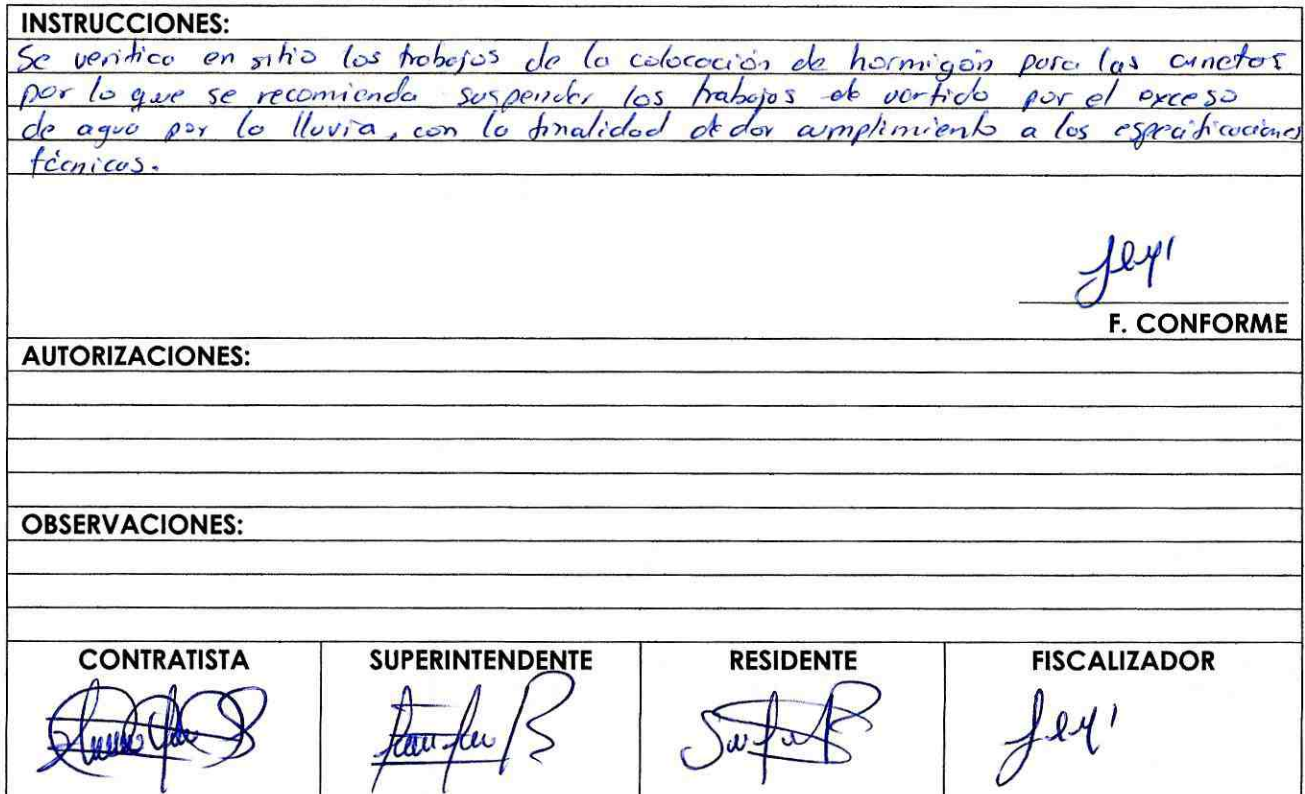 INSTRUCCIONES:
Se verifica en sitio los trabajos de la colocación de hormigón para las cunetas
por lo que se recomienda suspender los trabajos de vertido por el exceso
de agua por la lluvia, con la finalidad de dar cumplimiento a las especificaciones
técnicas.
F. CONFORME
AUTORIZACIONES:
OBSERVACIONES:
CONTRATISTA SUPERINTENDENTE RESIDENTE FISCALIZADOR